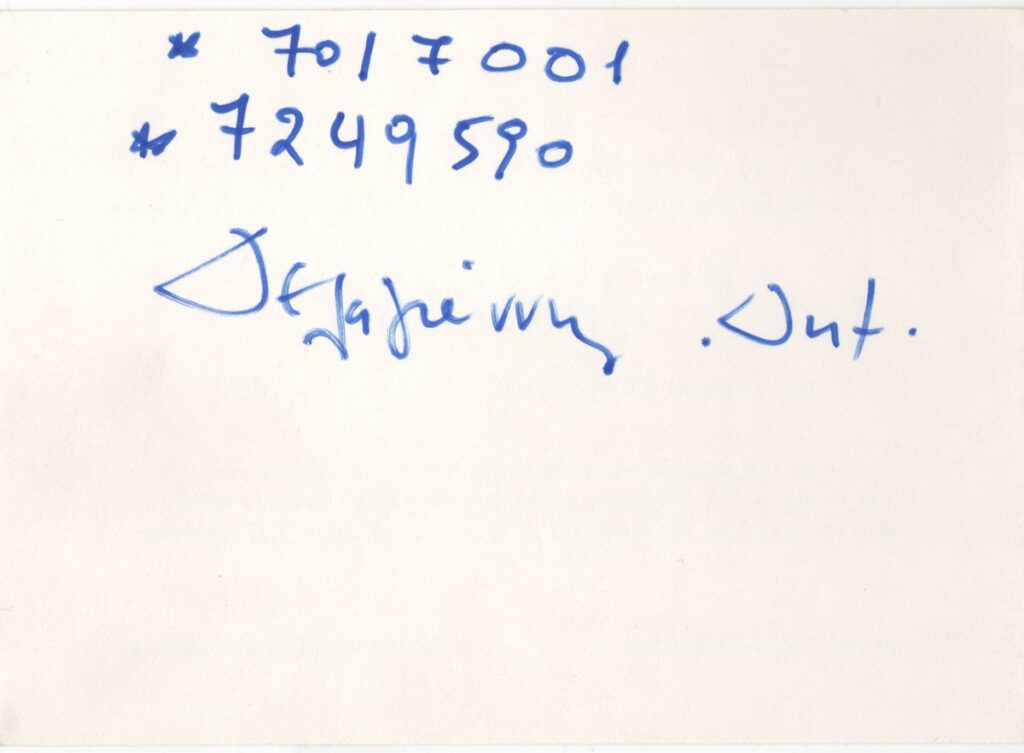 * 7017001
* 7249590
. Αντ .